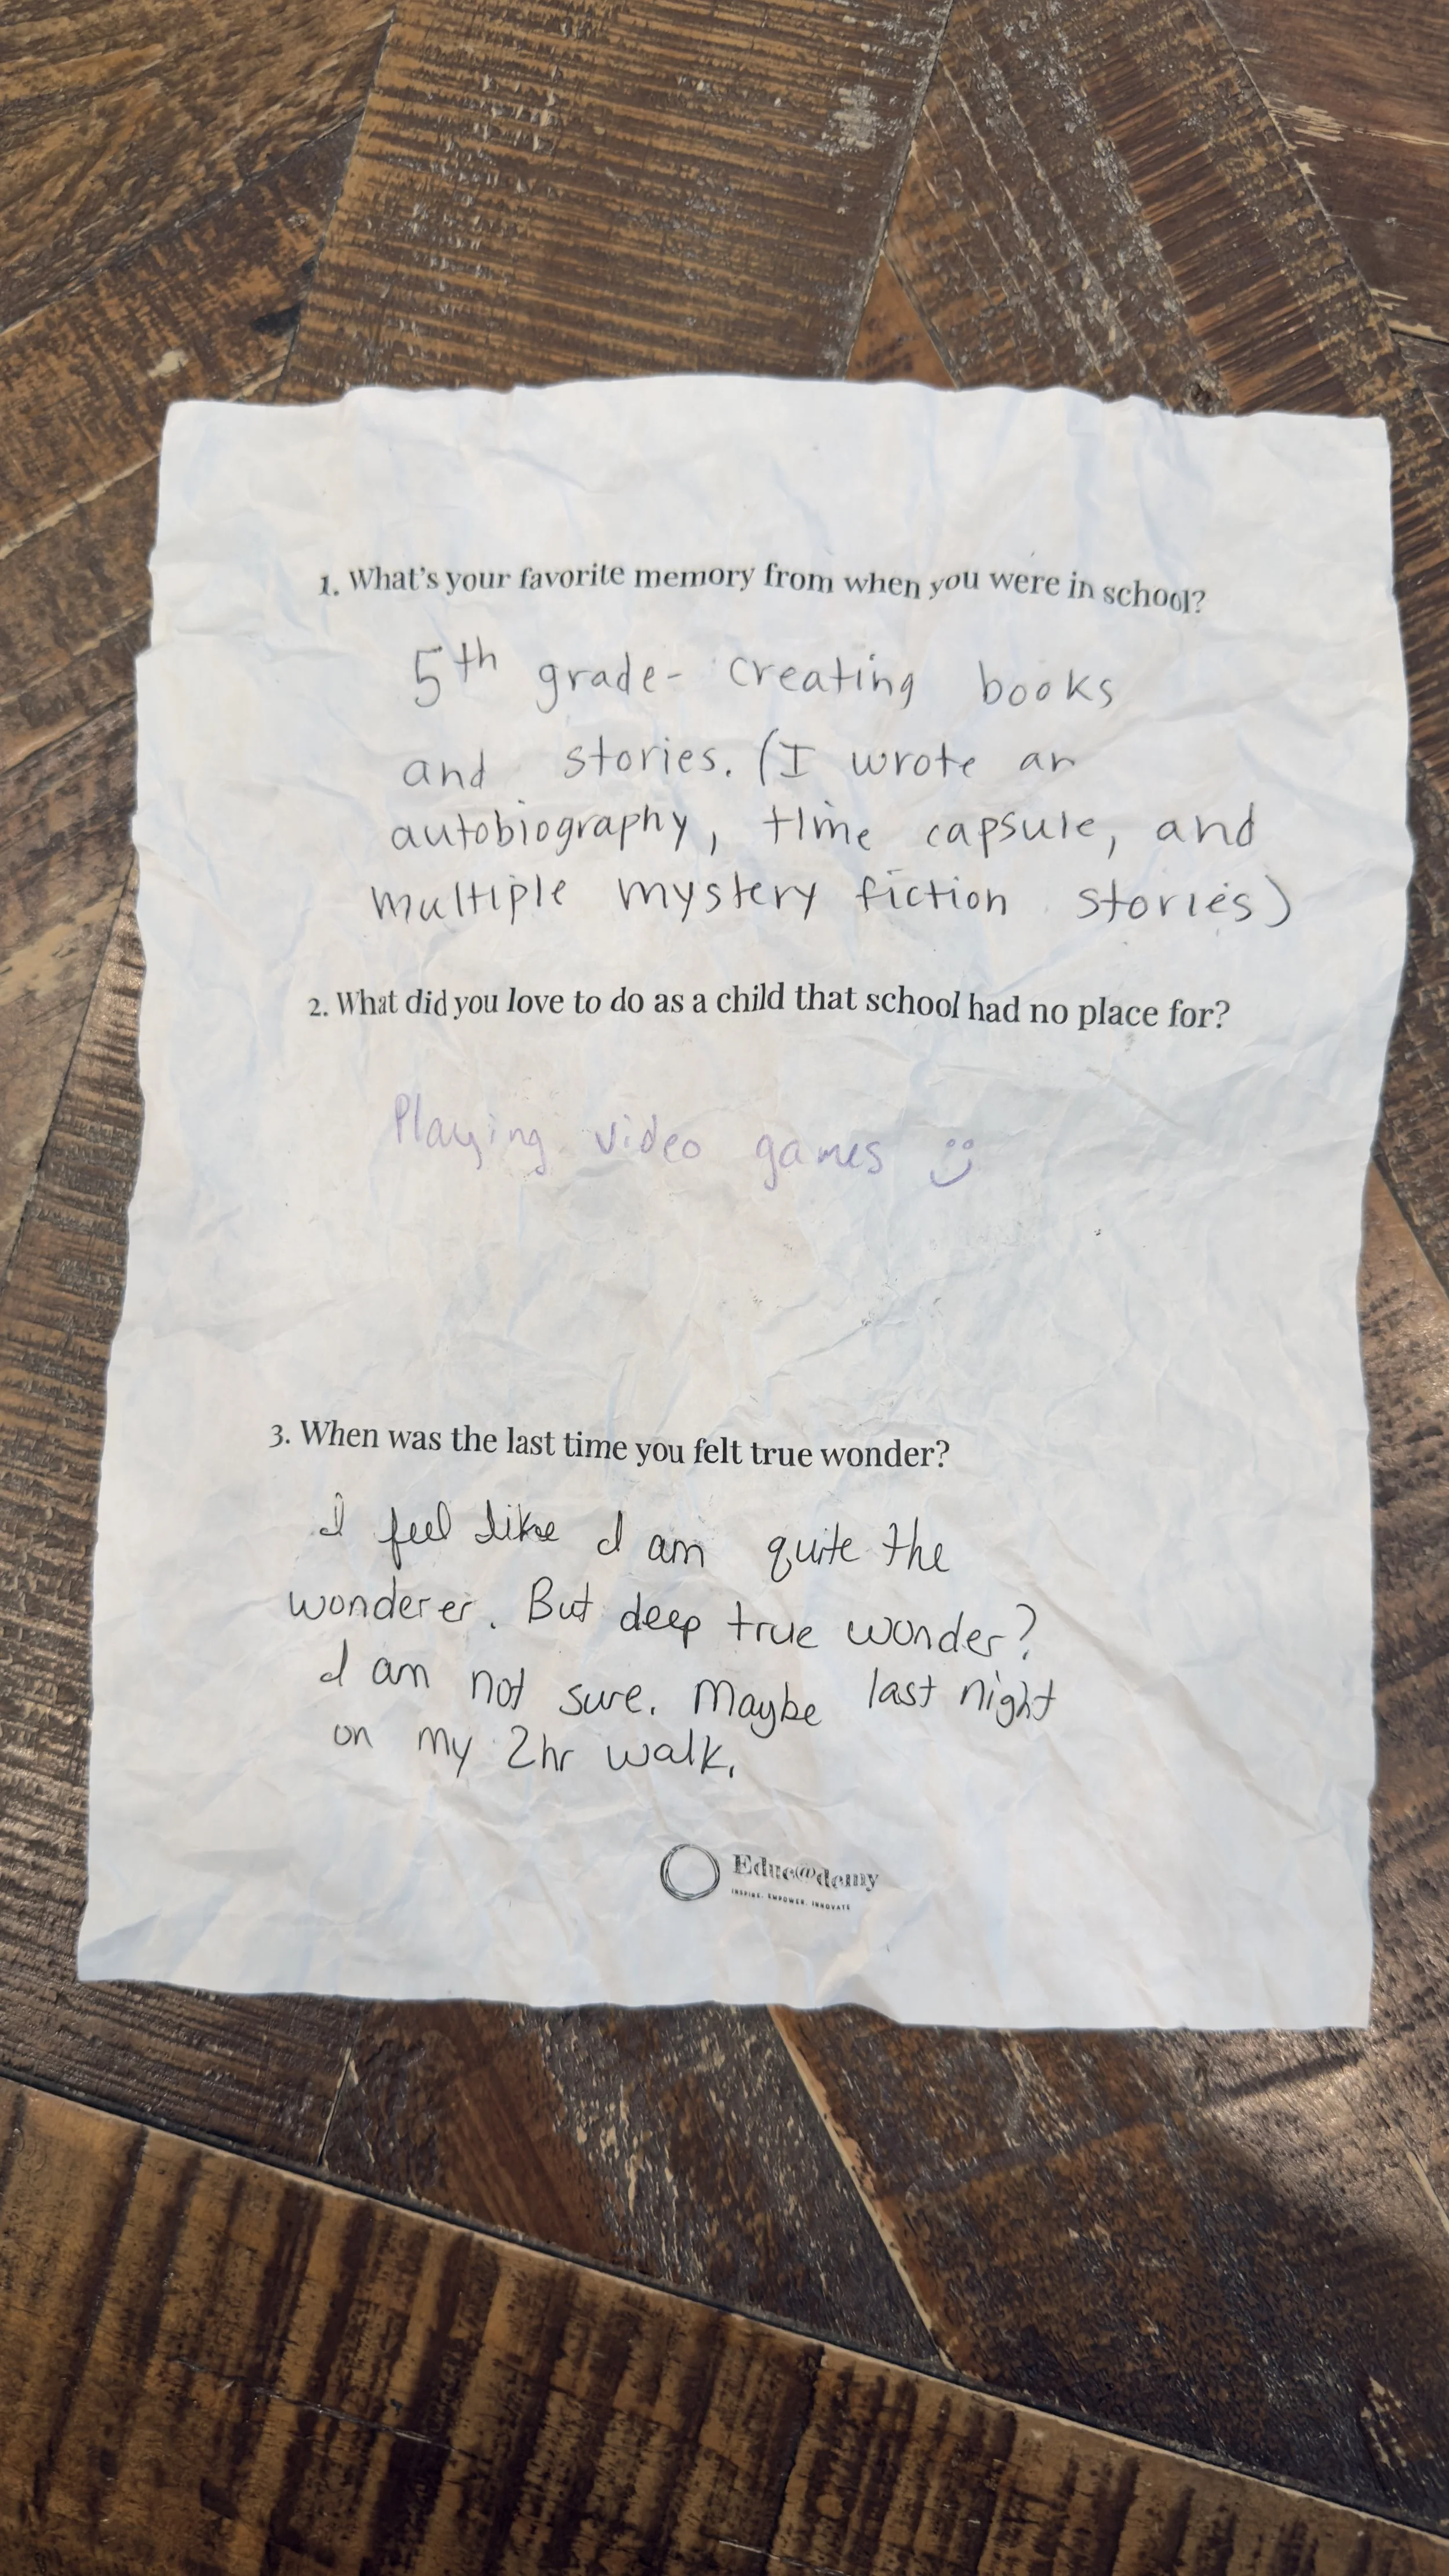 1. What's your favorite memory from when you were in school?
5th grade- creating books
and stories. (I wrote an
autobiography, time capsule, and
multiple mystery fiction stories)
2. What did you love to do as a child that school had no place for?
Playing video games :)
3. When was the last time you felt true wonder?
I feel like I am quite the
wonderer. But deep true wonder?
I am not sure. Maybe last night
on my 2hr walk.
Educ@demy
INSPIRE. EMPOWER. INNOVATE